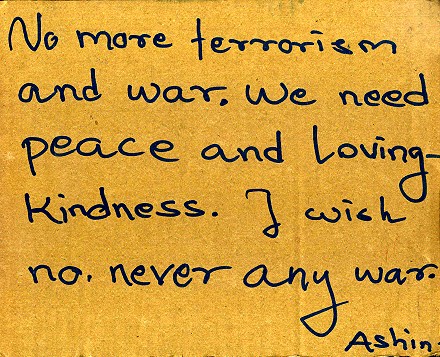 No more terrorism
and war. We need
peace and loving-
kindness. I wish
no. never any war.
Ashin.